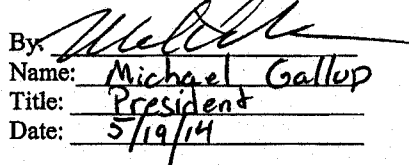 By:
Name: Michael Gallup
Title: President
Date: 5/19/14